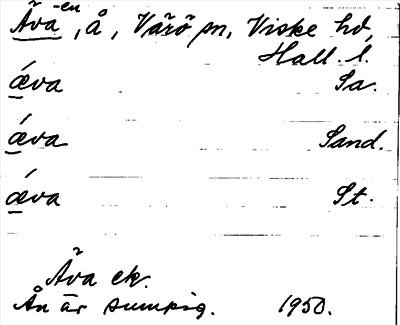 Äva -en, å, Värö sn, Viske hd,
Hall. l.
ǽ̱va Sa.
ǽ̱va Sand.
ǽ̱va St.
Äva ek.
Ån är sumpig. 1950.